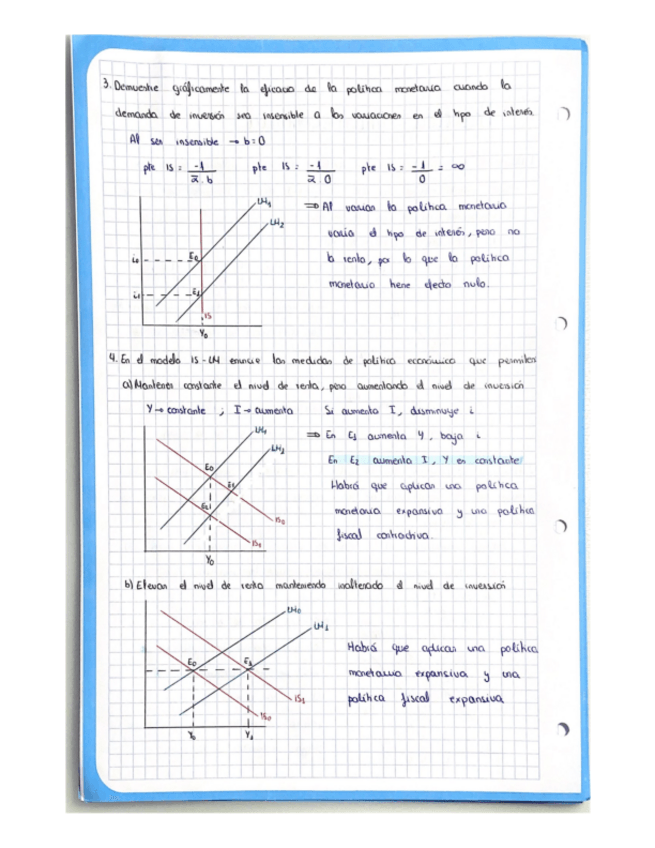 3. Demuestre gráficamente la eficacia de la política monetaria cuando la
demanda de inversión sea insensible a las variaciones en el tipo de interés.
Al ser insensible → b=0
pte IS = -1 / α · b    pte IS = -1 / α · 0    pte IS = -1 / 0 = ∞
LM1
LM2
i0
E0
i1
E1
IS
Y0
⇒ Al variar la política monetaria
varía el tipo de interés, pero no
la renta, por lo que la política
monetaria tiene efecto nulo.
4. En el modelo IS-LM enuncie las medidas de política económica que permiten
a) Mantener constante el nivel de renta, pero aumentando el nivel de inversión
Y → constante ; I → aumenta
Si aumenta I, disminuye i
⇒ En E1 aumenta Y, baja i
En E2 aumenta I, Y es constante
Habrá que aplicar una política
monetaria expansiva y una política
fiscal contractiva.
LM0
LM1
E0
E1
E2
IS0
IS1
Y0
b) Elevar el nivel de renta manteniendo inalterado el nivel de inversión
LM0
LM1
E0
E1
IS1
IS0
Y0
Y1
Habrá que aplicar una política
monetaria expansiva y una
política fiscal expansiva